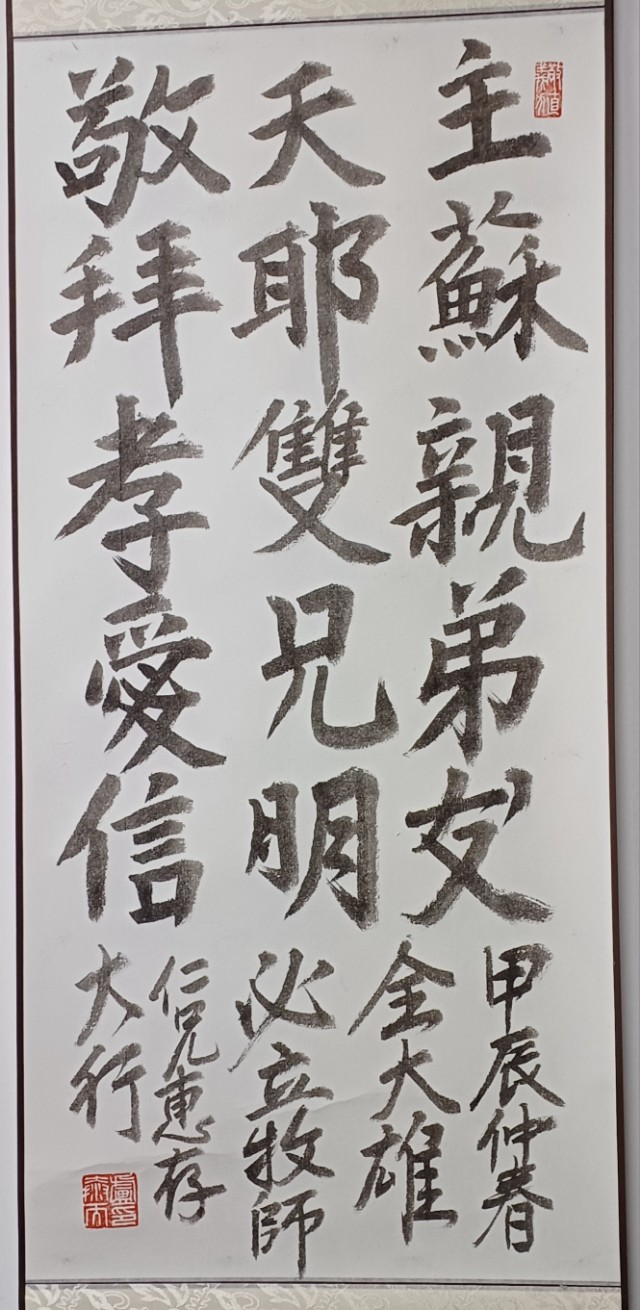 敬天主
拜耶蘇
孝雙親
愛兄弟
信明友
甲辰仲春
全大雄
必立牧師
仁兄惠存
大行